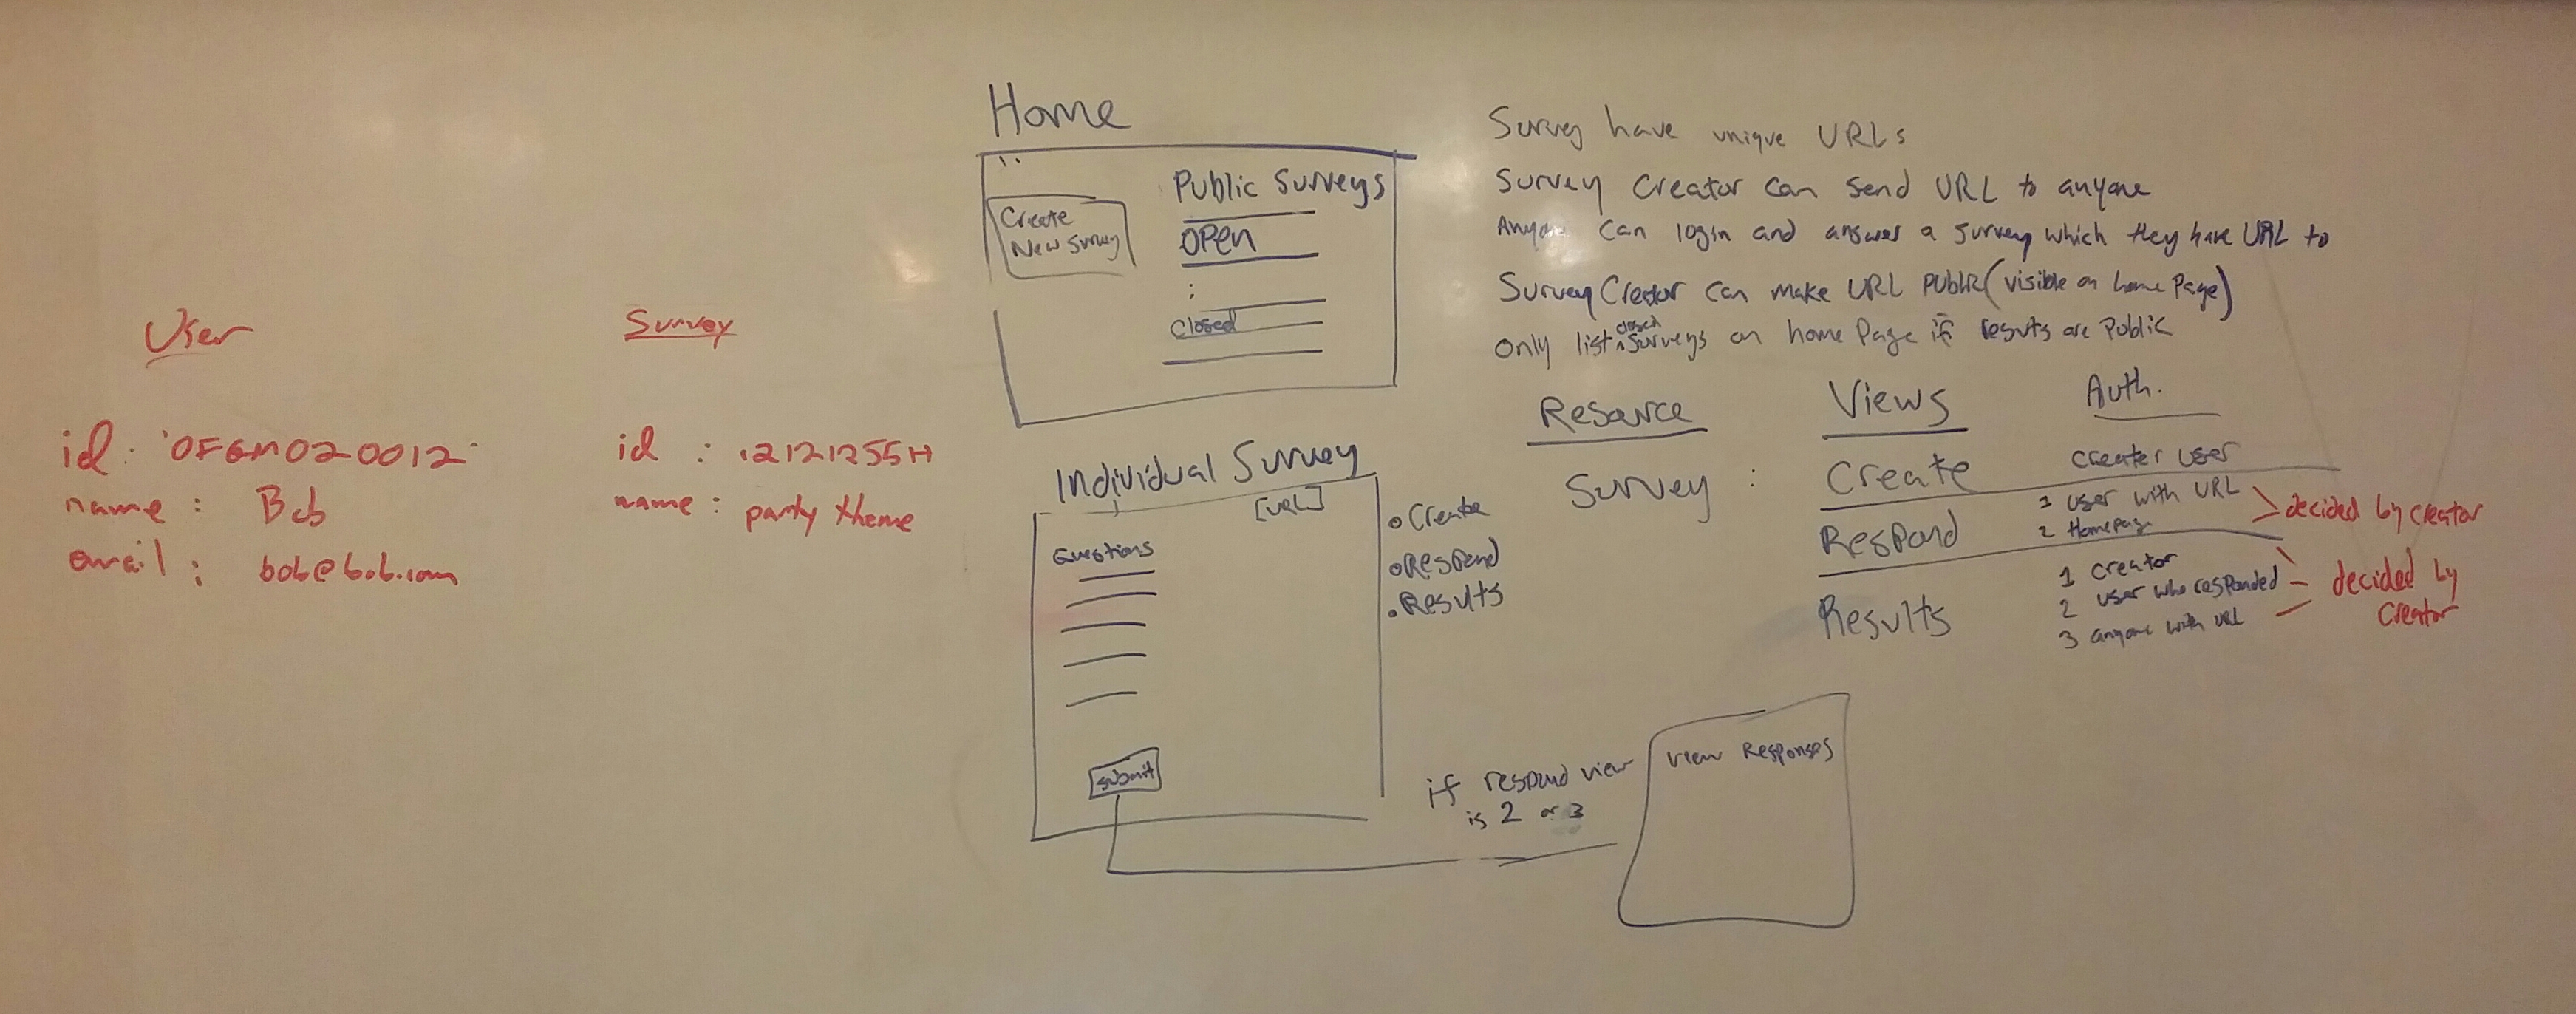 User
id: 'OFGM020012'
name: Bob
email: bob@bob.com
Survey
id: 12121255H
name: party theme
Home
Public Surveys
Create
New Survey
OPEN
Closed
Individual Survey
[URL]
Questions
submit
Create
Respond
Results
Survey have unique URLs
Survey Creator can send URL to anyone
Anyone can login and answer a survey which they have URL to
Survey Creator can make URL public (visible on home Page)
only list closed surveys on home Page if results are Public
Resource
Views
Auth.
Survey :
Create
creater user
Respond
1 user with URL
2 Homepage
decided by creator
Results
1 creator
2 user who responded
3 anyone with URL
decided by
creator
if respond view
is 2 or 3
view Responses